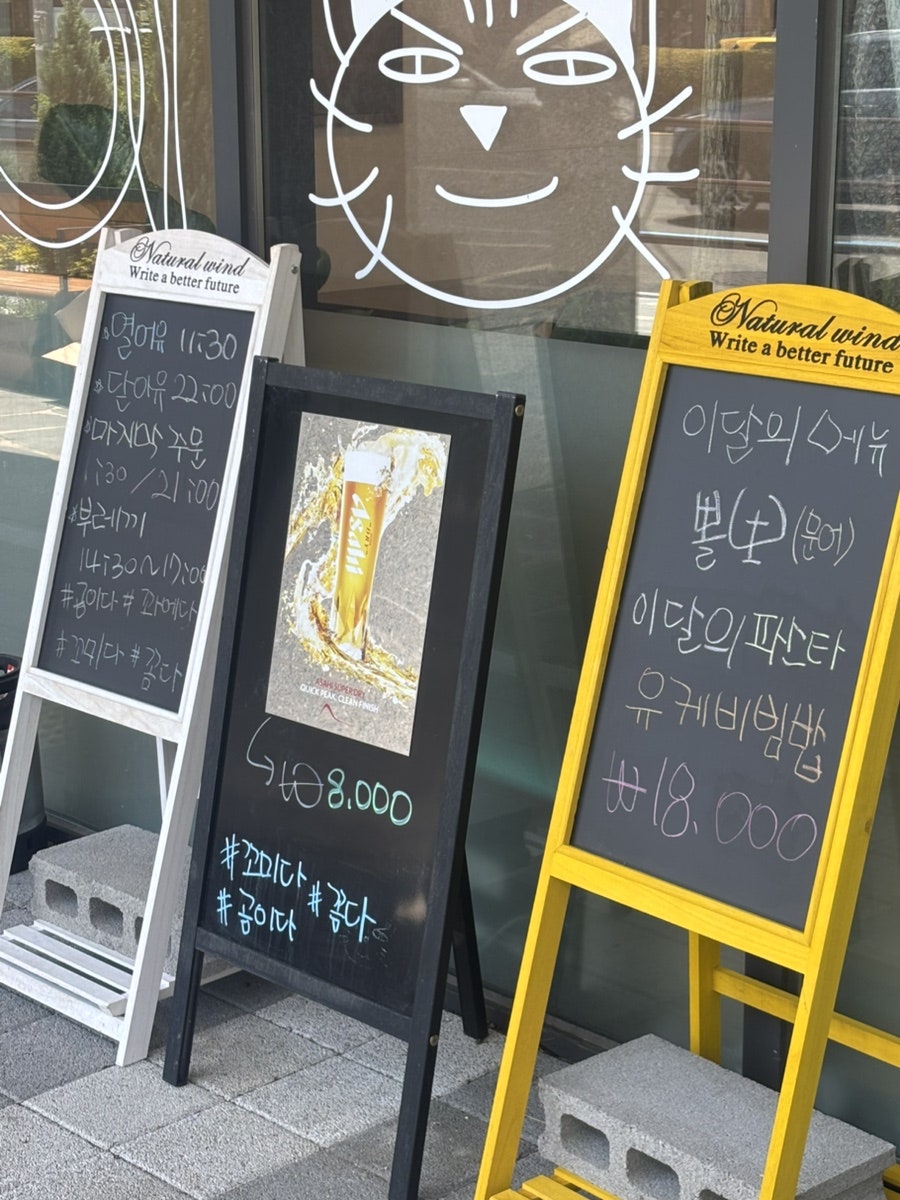 Natural wind
Write a better future
*열어유 11:30
*닫아유 22:00
*마지막 주문
:30 / 21:00
*부레끼
14:30~17:00
#곰이다
#꼬미다 #꼼다
Asahi
ASAHI SUPER DRY
QUICK PEAK. CLEAN FINISH
₩8.000
#꼬미다 #꼼다
#곰이다
Natural wind
Write a better future
이달의 메뉴
뽈(뽀)(문어)
이달의 파스타
유케비빔밥
₩18.000